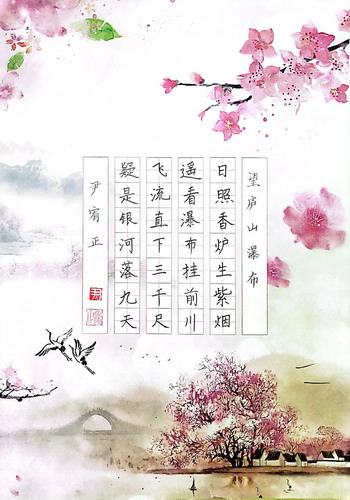 望庐山瀑布
日照香炉生紫烟
遥看瀑布挂前川
飞流直下三千尺
疑是银河落九天
尹宥正